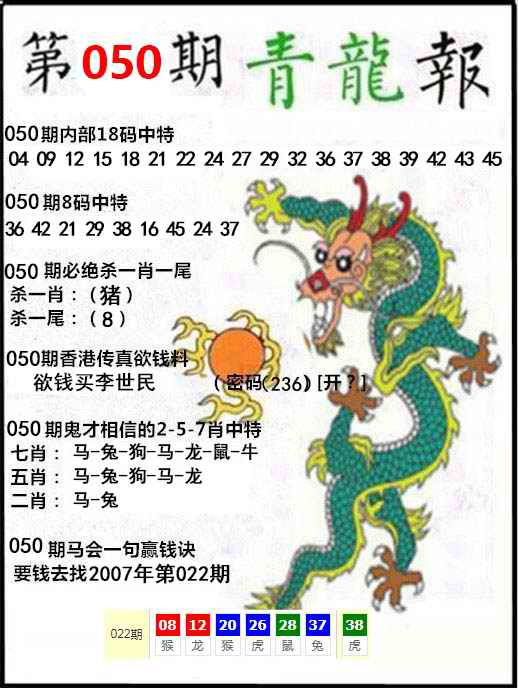 第050期青龍報
050期内部18码中特
04 09 12 15 18 21 22 24 27 29 32 36 37 38 39 42 43 45
050期8码中特
36 42 21 29 38 16 45 24 37
050 期必绝杀一肖一尾
杀一肖：（猪）
杀一尾：（8）
050期香港传真欲钱料
欲钱买李世民 （密码(236) [开？]
050期鬼才相信的2-5-7肖中特
七肖： 马-兔-狗-马-龙-鼠-牛
五肖： 马-兔-狗-马-龙
二肖： 马-兔
050期马会一句赢钱诀
要钱去找2007年第022期
022期 08 12 20 26 28 37 38
猴 龙 猴 虎 鼠 兔 虎